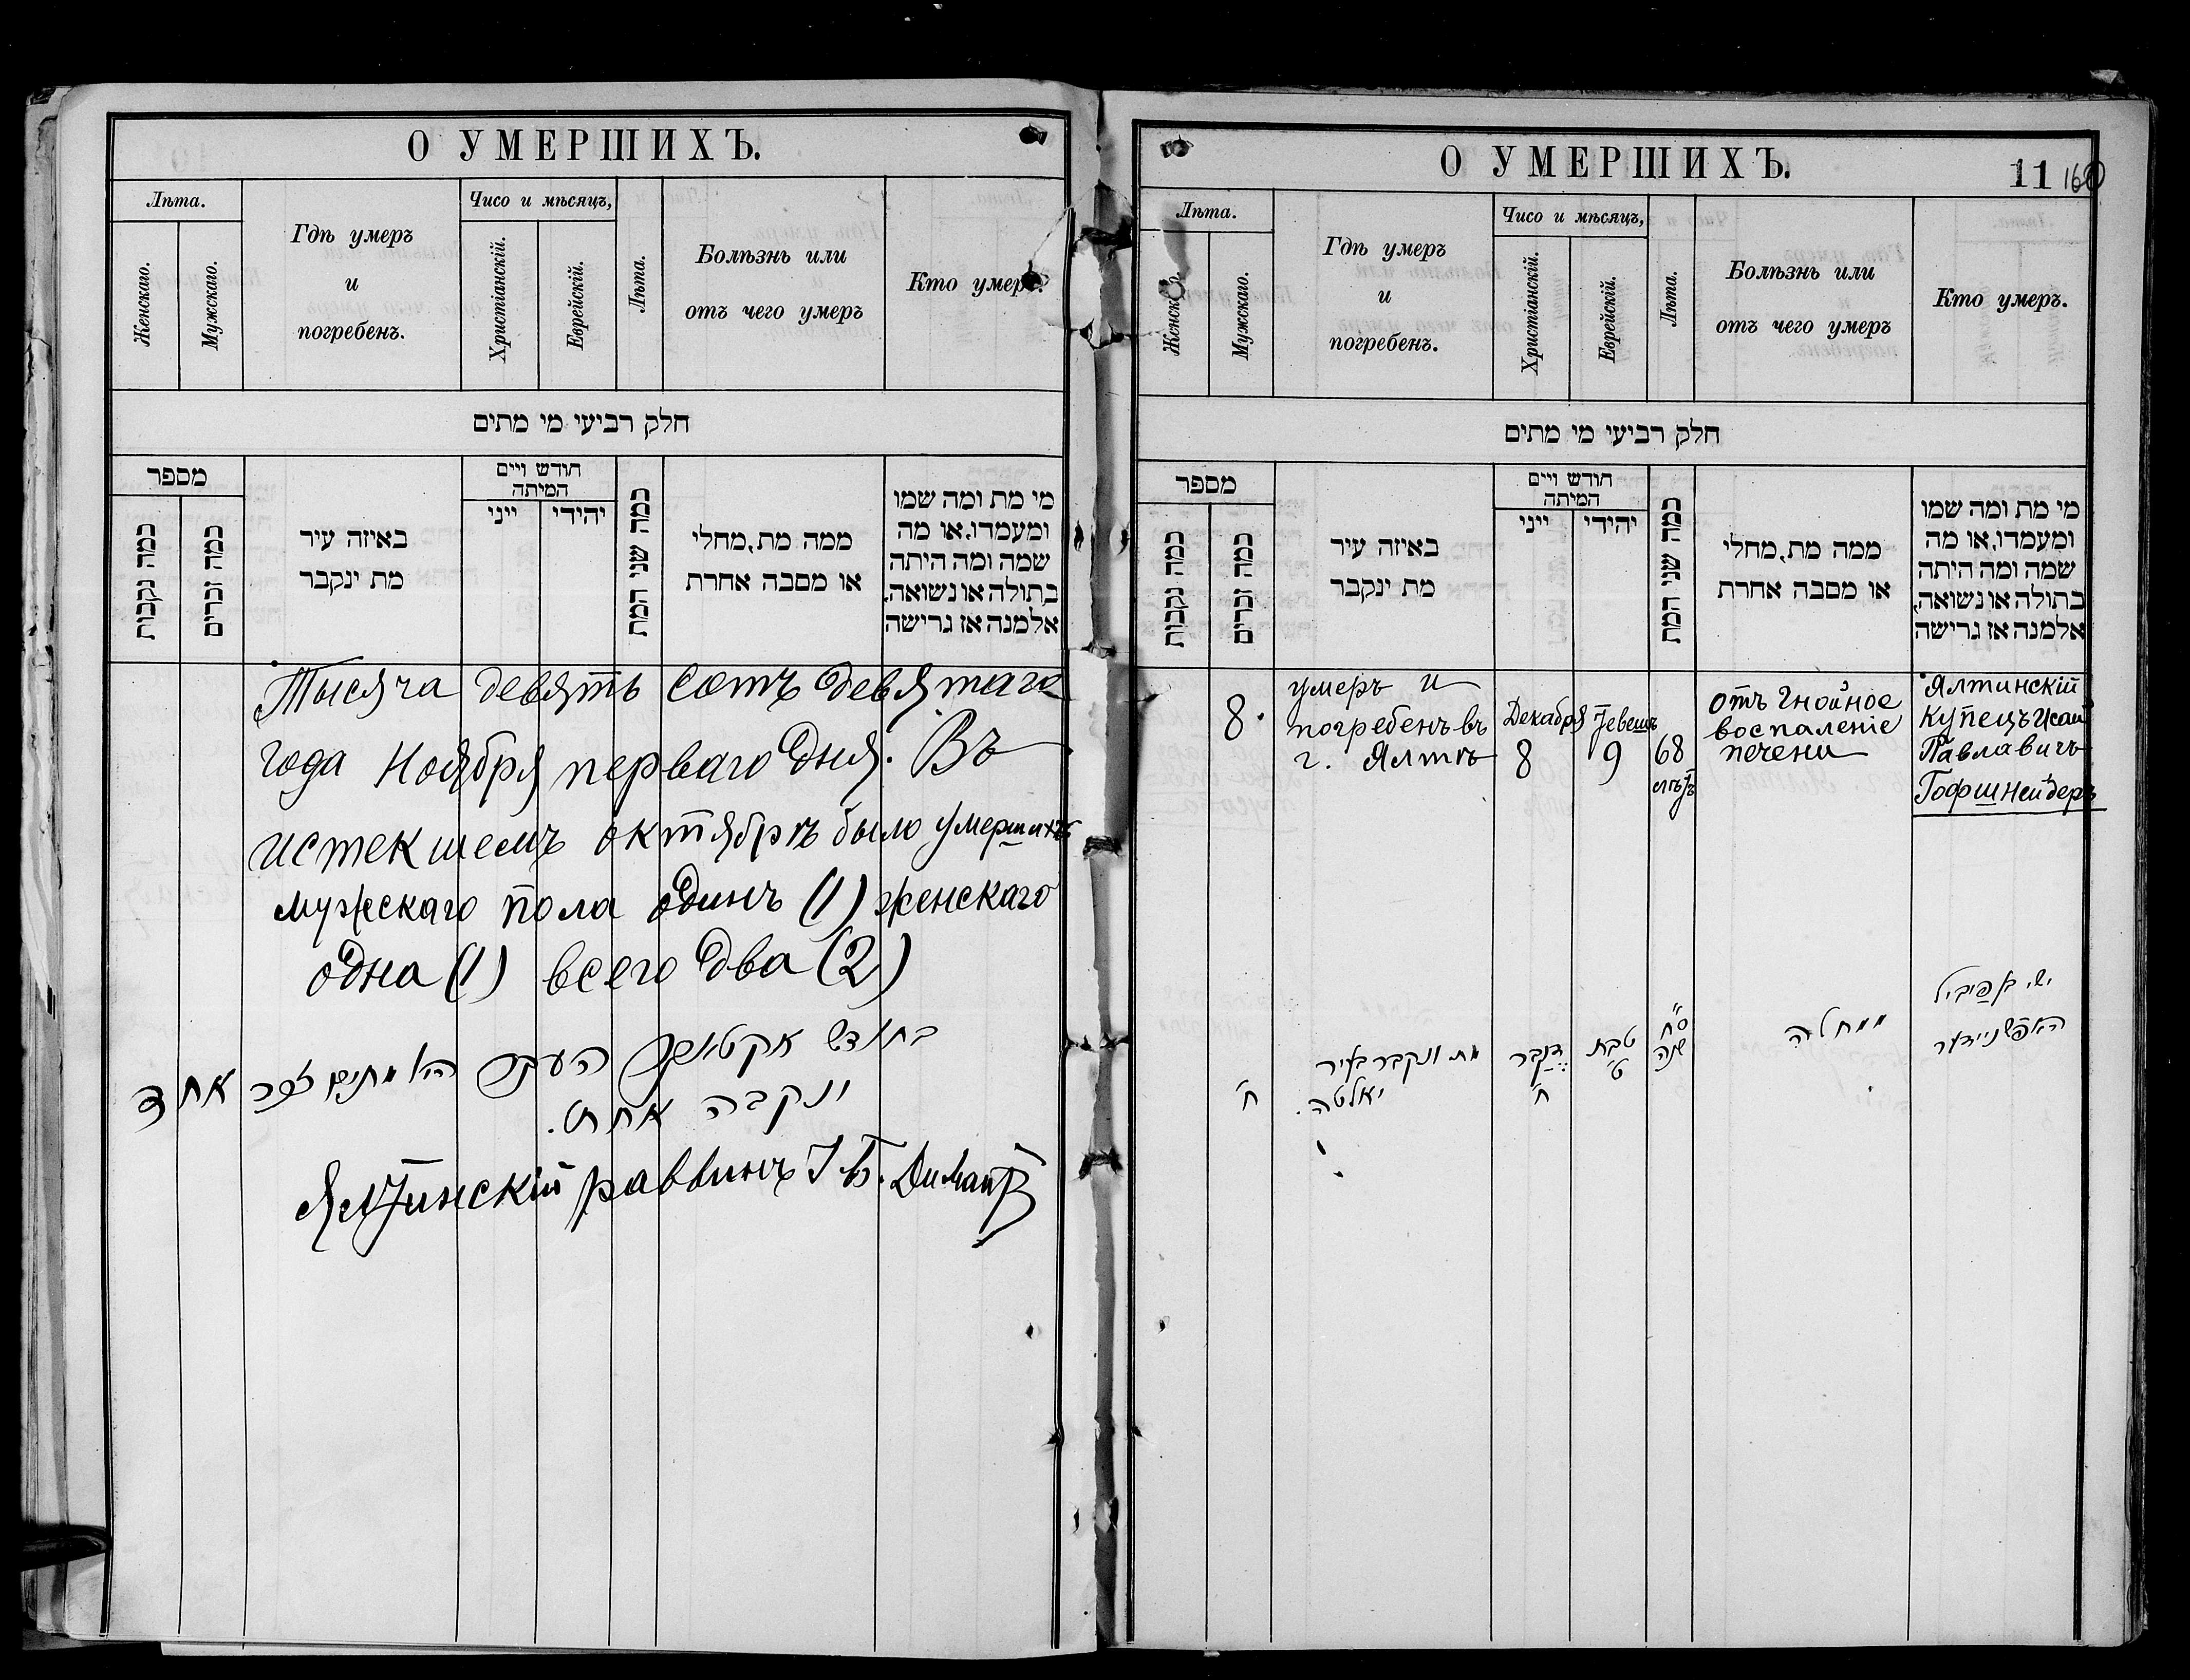 О УМЕРШИХЪ.
Лѣта.
Женскаго.
Мужскаго.
Гдѣ умеръ
и
погребенъ.
Чисо и мѣсяцъ,
Христіанскій.
Еврейскій.
Лѣта.
Болѣзнь или
отъ чего умеръ
Кто умеръ.
חלק רביעי מי מתים
מספר
כמה נקבות
כמה זכרים
באיזה עיר
מת ינקבר
חודש ויים
המיתה
ייני
יהידי
כמה שני המת
ממה מת, מחלי
או מסבה אחרת
מי מת ומה שמו
ומעמדו, או מה
שמה ומה היתה
בתולה או נשואה,
אלמנה אז גרישה
Тысяча девять сотъ девятаго
года Ноября перваго дня. Въ
истекшемъ октябрѣ было умершихъ
мужескаго пола одинъ (1) женскаго
одна (1) всего два (2)
בחודש אקטאבר העבר מתים זכר אחד
ונקבה אחת.
Ялтинскій раввинъ І Б. Димантъ
О УМЕРШИХЪ.
11 160
Лѣта.
Женскаго.
Мужскаго.
Гдѣ умеръ
и
погребенъ.
Чисо и мѣсяцъ,
Христіанскій.
Еврейскій.
Лѣта.
Болѣзнь или
отъ чего умеръ
Кто умеръ.
חלק רביעי מי מתים
מספר
כמה נקבות
כמה זכרים
באיזה עיר
מת ינקבר
חודש ויים
המיתה
ייני
יהידי
כמה שני המת
ממה מת, מחלי
או מסבה אחרת
מי מת ומה שמו
ומעמדו, או מה
שמה ומה היתה
בתולה או נשואה,
אלמנה אז גרישה
8.
умеръ и
погребенъ въ
г. Ялтѣ
Декабря
8
Тевешъ
9
68
лѣтъ
отъ гнойное
воспаленіе
печени
Ялтинскій
купецъ Исай
Павлавичъ
Гофшнейдеръ
ח'
מת ונקבר בעיר
יאלטה.
דעקבר
ח'
טבת
ט'
ס"ח
שנה
ממחלה
האפשניידער